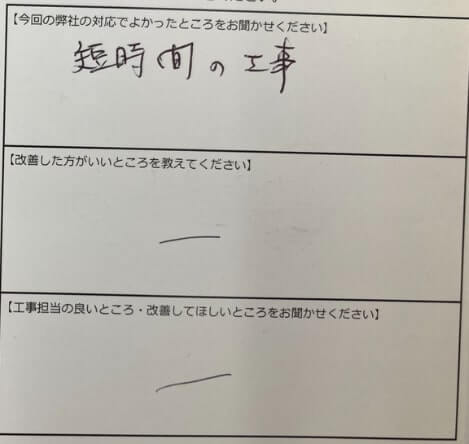 【今回の弊社の対応でよかったところをお聞かせください】
短時間の工事
【改善した方がいいところを教えてください】
—
【工事担当の良いところ・改善してほしいところをお聞かせください】
—